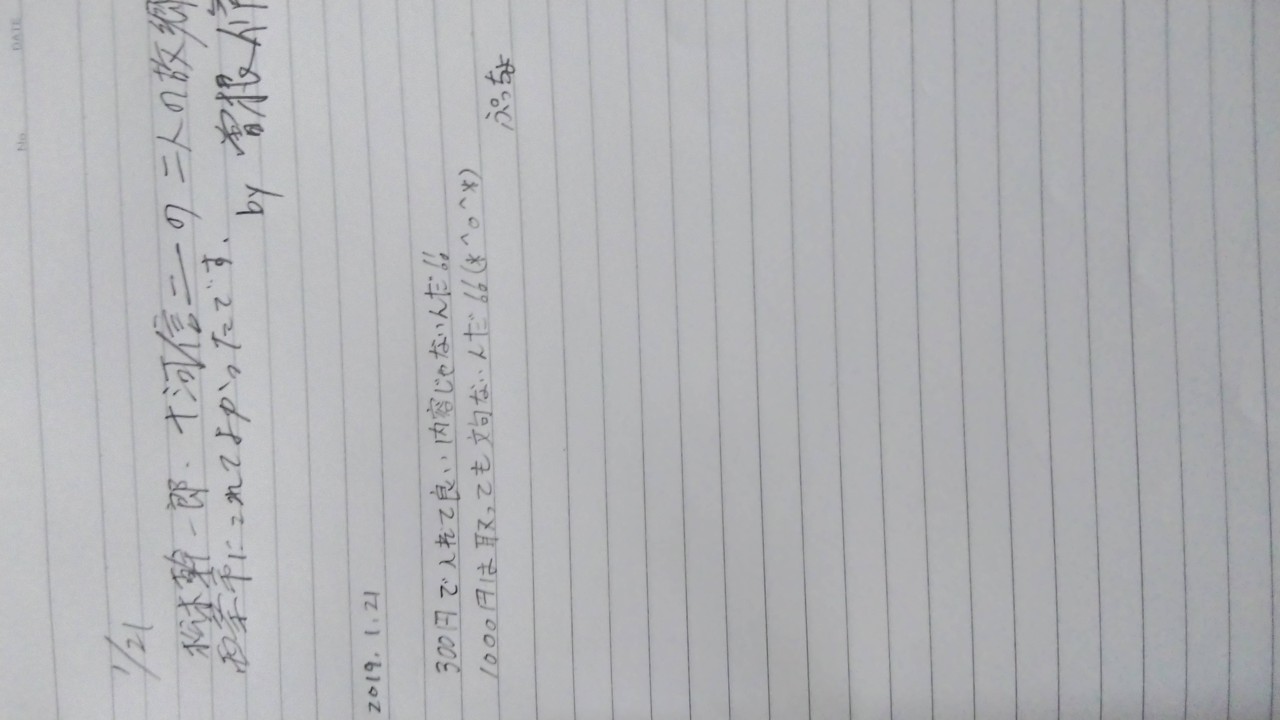 No.
DATE
1/21
松木幹一郎、十河信二の二人の故郷
西条市にこれてよかったです。
by 曽根
2019.1.21
300円で入れて良い内容じゃないんだ!!
1000円は取っても文句ないんだ!!(*^o^*)
ぷっちょ